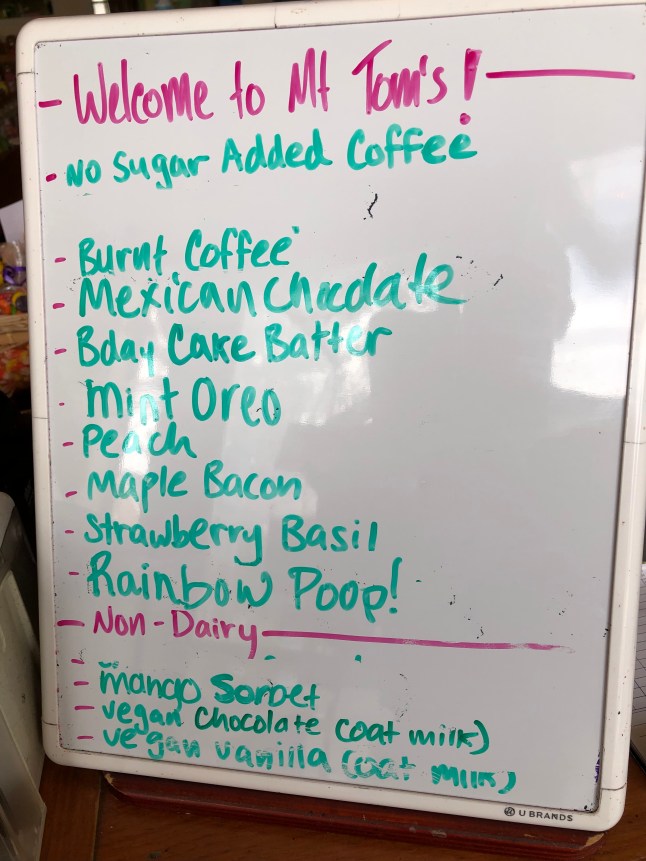 - Welcome to Mt Tom's!
- No Sugar Added Coffee
- Burnt Coffee
- Mexican Chocolate
- Bday Cake Batter
- Mint Oreo
- Peach
- Maple Bacon
- Strawberry Basil
- Rainbow Poop!
- Non-Dairy
- mango Sorbet
- vegan chocolate (oat milk)
- vegan vanilla (oat milk)
U BRANDS